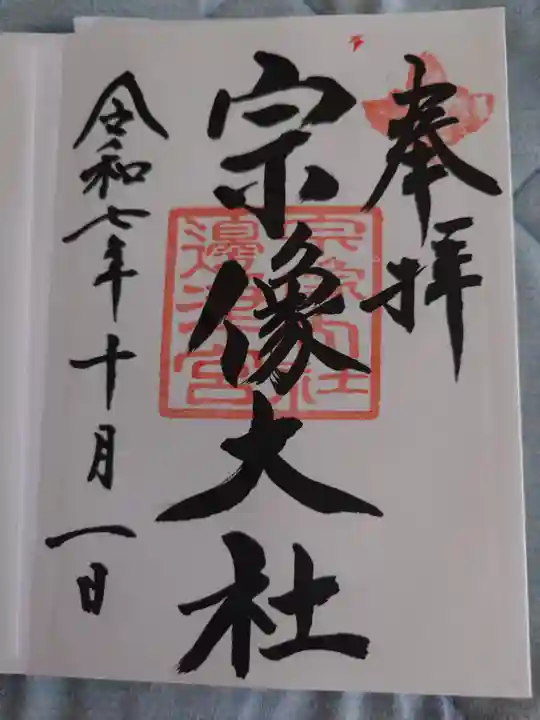 奉拝
宗像大社
宗像大社
邊津宮
令和七年十月一日